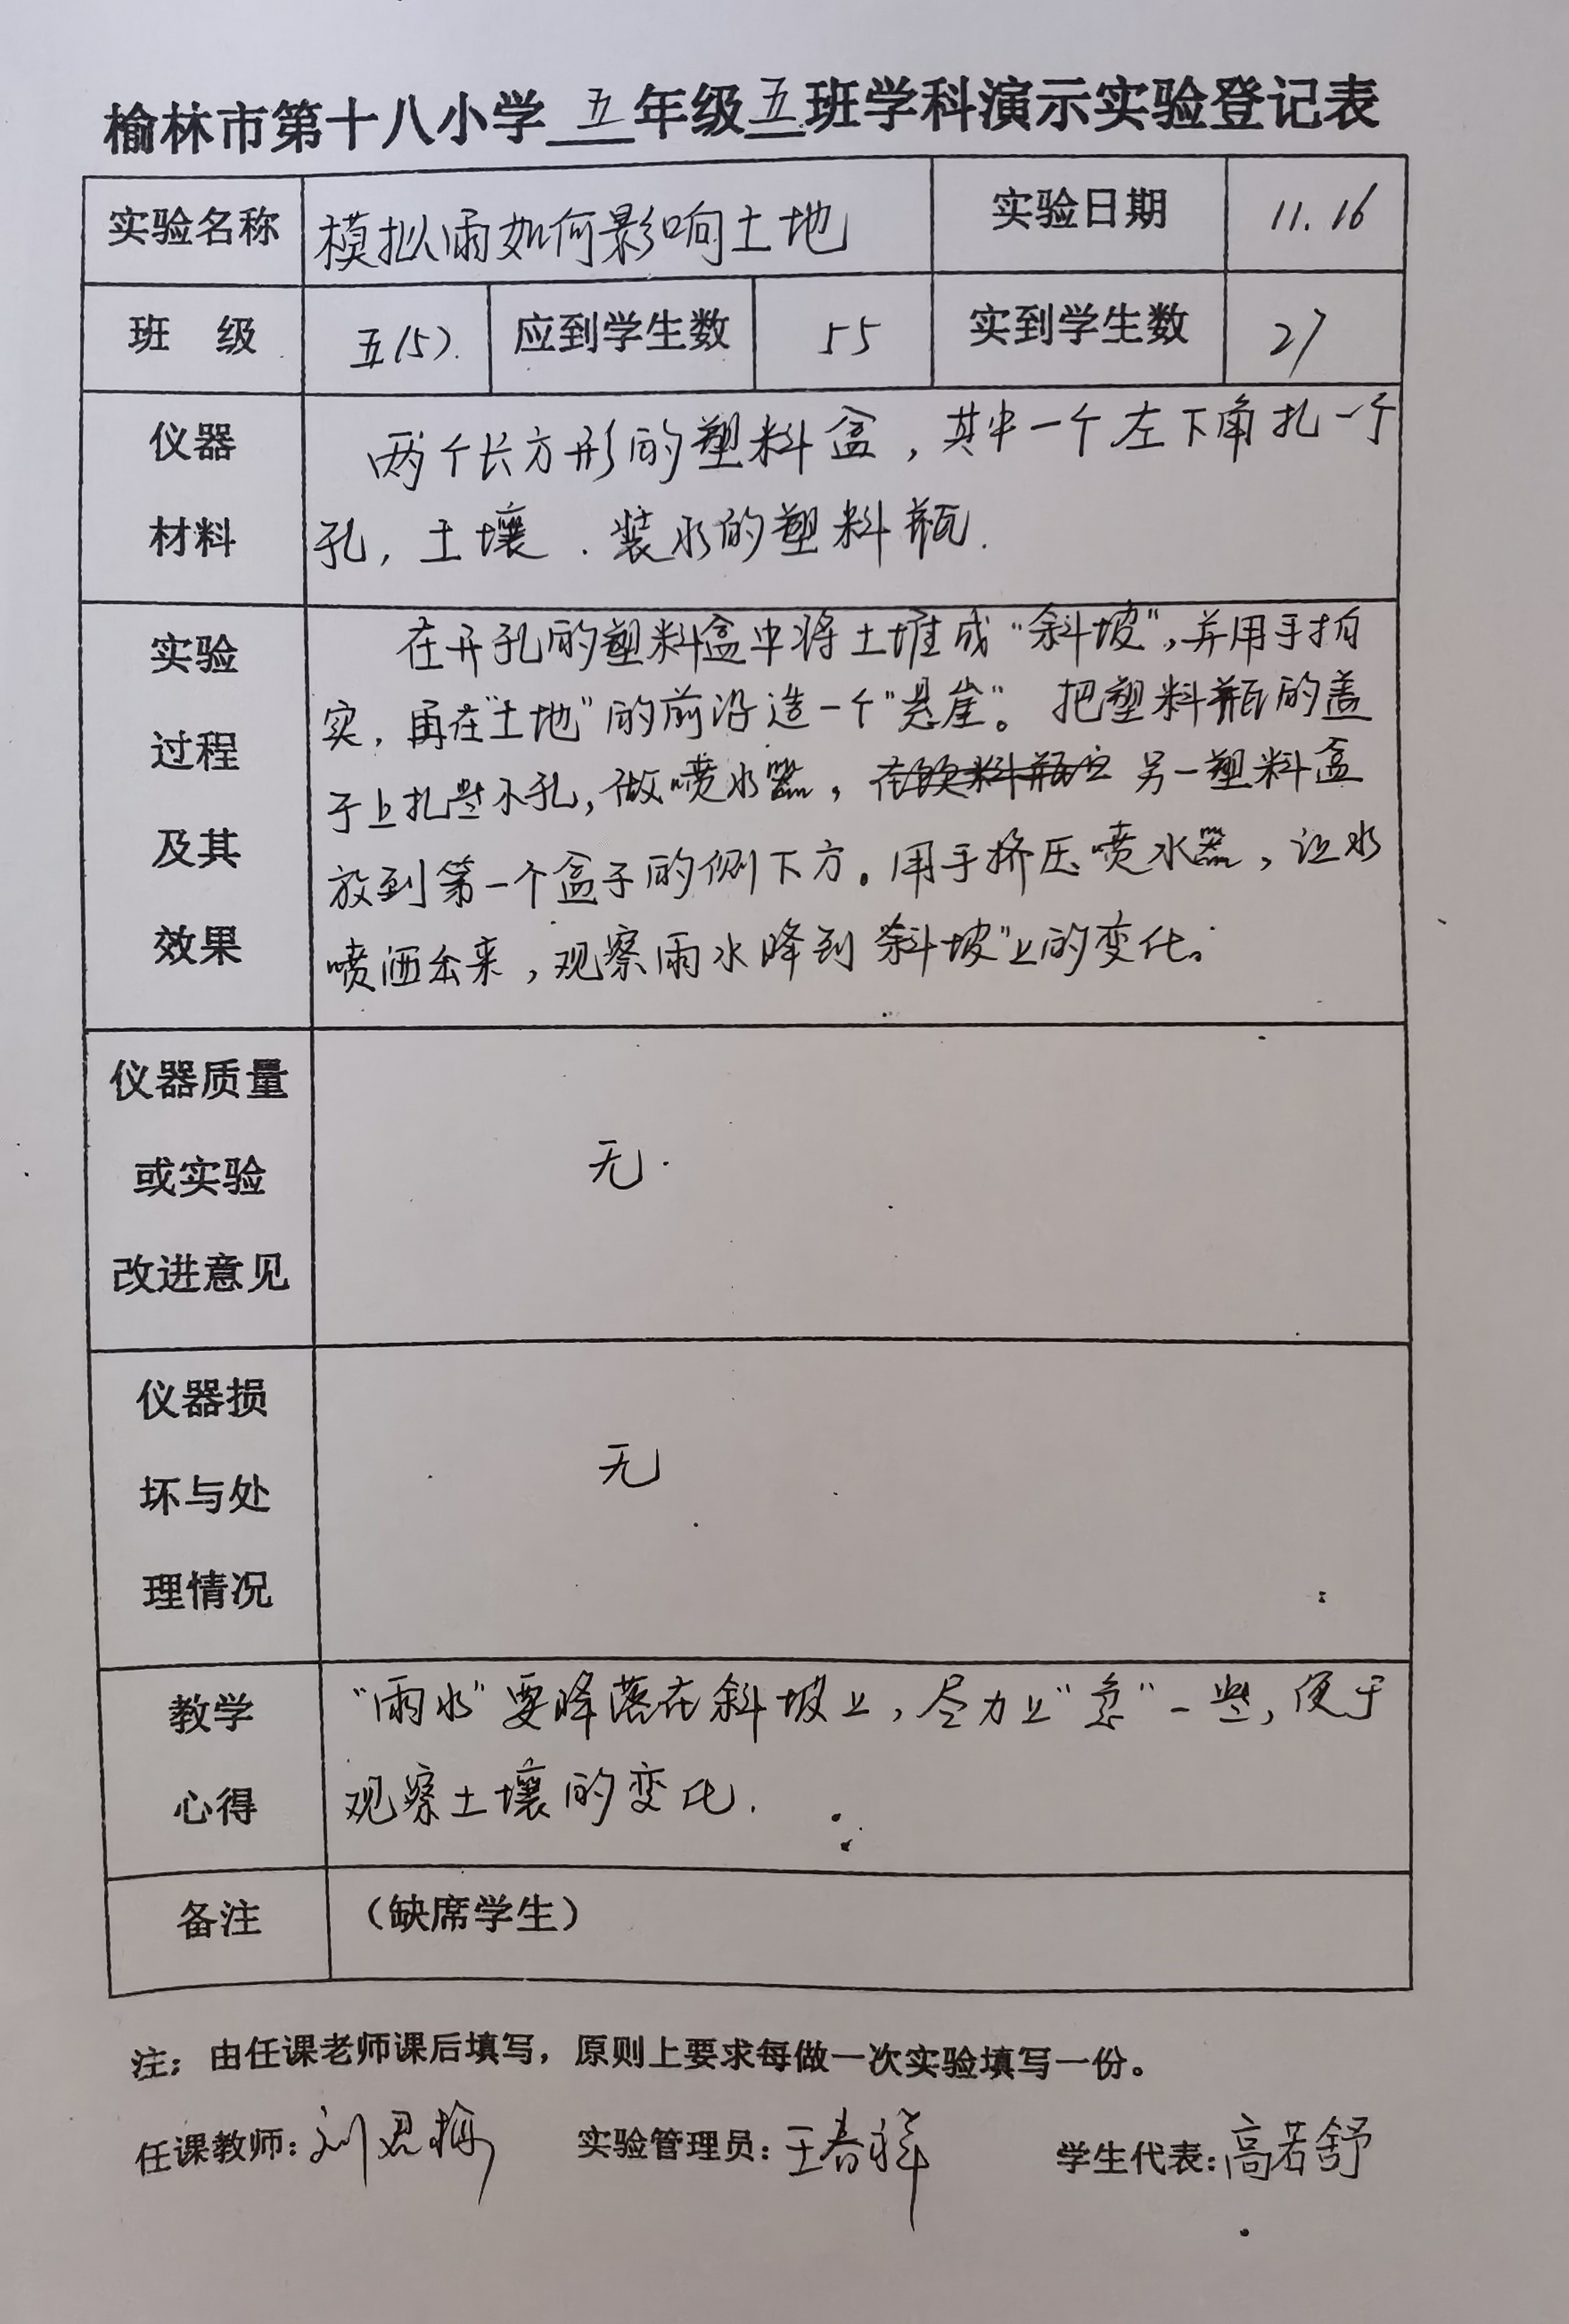 榆林市第十八小学 五 年级 五 班学科演示实验登记表
实验名称 模拟雨如何影响土地 实验日期 11.16
班 级 五(5). 应到学生数 55 实到学生数 27
仪器
材料
两个长方形的塑料盒，其中一个左下角扎一个
孔，土壤．装水的塑料瓶．
实验
过程
及其
效果
在开孔的塑料盒中将土堆成“斜坡”，并用手拍
实，再在“土地”的前沿造一个“悬崖”。把塑料瓶的盖
子上扎些小孔，做喷水器，另一塑料盒
放到第一个盒子的侧下方。用手挤压喷水器，让水
喷洒出来，观察雨水降到 斜坡”上的变化。
仪器质量
或实验
改进意见
无.
仪器损
坏与处
理情况
无
教学
心得
“雨水”要降落在斜坡上，尽力上“急”一些，便于
观察土壤的变化．
备注 （缺席学生）
注：由任课老师课后填写，原则上要求每做一次实验填写一份。
任课教师：刘 实验管理员：王春祥 学生代表：高若舒